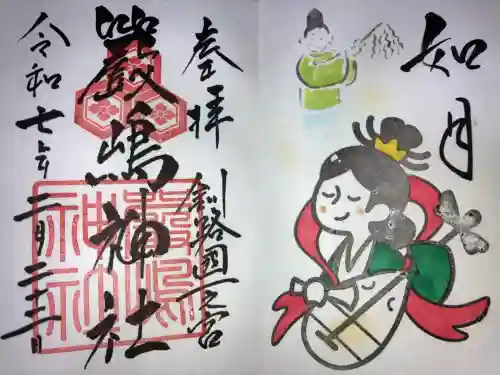 如月
奉拝
釧路國一之宮
嚴嶋神社
嚴嶋
神社
令和七年二月二十二日